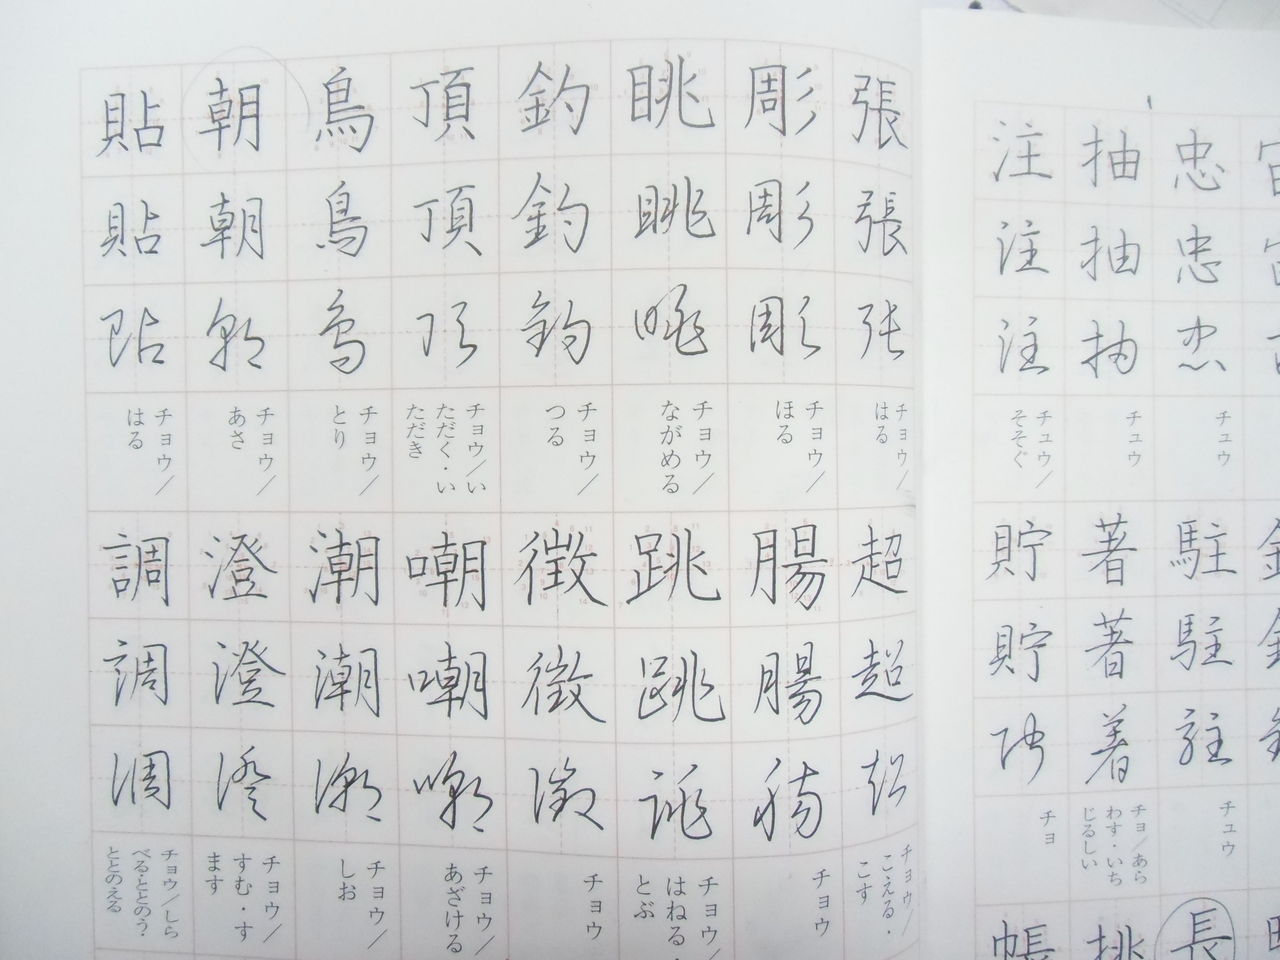 張 張 張 チョウ／はる
彫 彫 彫 チョウ／ほる
眺 眺 眺 チョウ／ながめる
釣 釣 釣 チョウ／つる
頂 頂 頂 チョウ／いただく・いただき
鳥 鳥 鳥 チョウ／とり
朝 朝 朝 チョウ／あさ
貼 貼 貼 チョウ／はる
超 超 超 チョウ／こえる・こす
腸 腸 腸 チョウ
跳 跳 跳 チョウ／はねる・とぶ
徴 徴 徴 チョウ
嘲 嘲 嘲 チョウ／あざける
潮 潮 潮 チョウ／しお
澄 澄 澄 チョウ／すむ・すます
調 調 調 チョウ／しらべる・ととのう・ととのえる
忠 忠 忠 チュウ
抽 抽 抽 チュウ
注 注 注 チュウ／そそぐ
駐 駐 駐 チュウ
著 著 著 チョ／あらわす・いちじるしい
貯 貯 貯 チョ
長
挑
帳